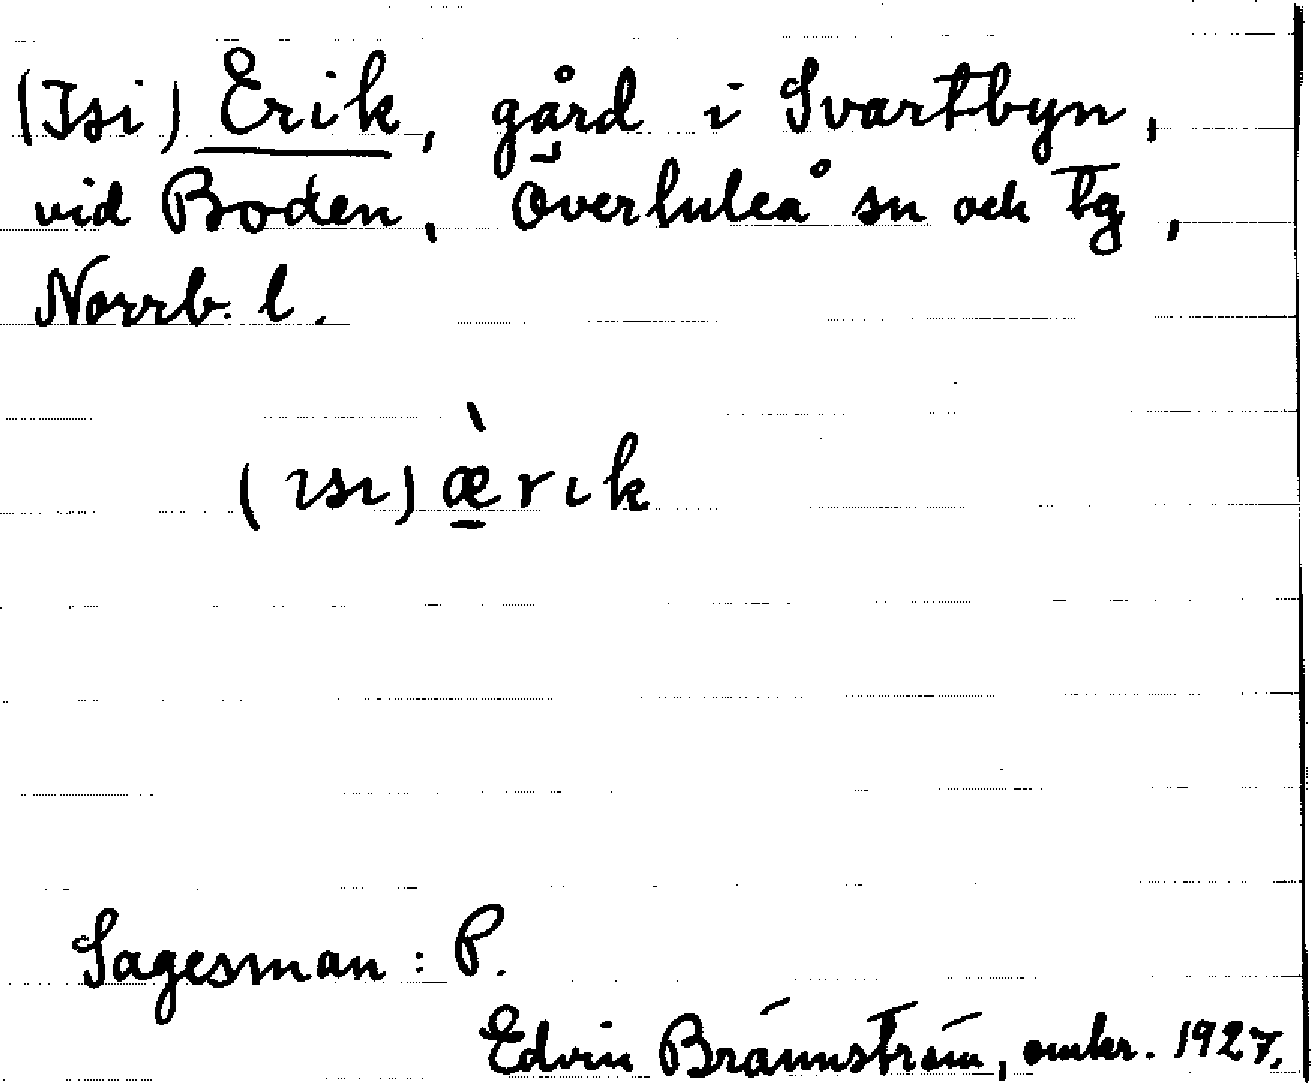 (Isi) Erik, gård i Svartbyn,
vid Boden, Överluleå sn och tg,
Norrb. l.
(ısı) æ̱̀rık
Sagesman : P.
Edvin Brännström, omkr. 1927.